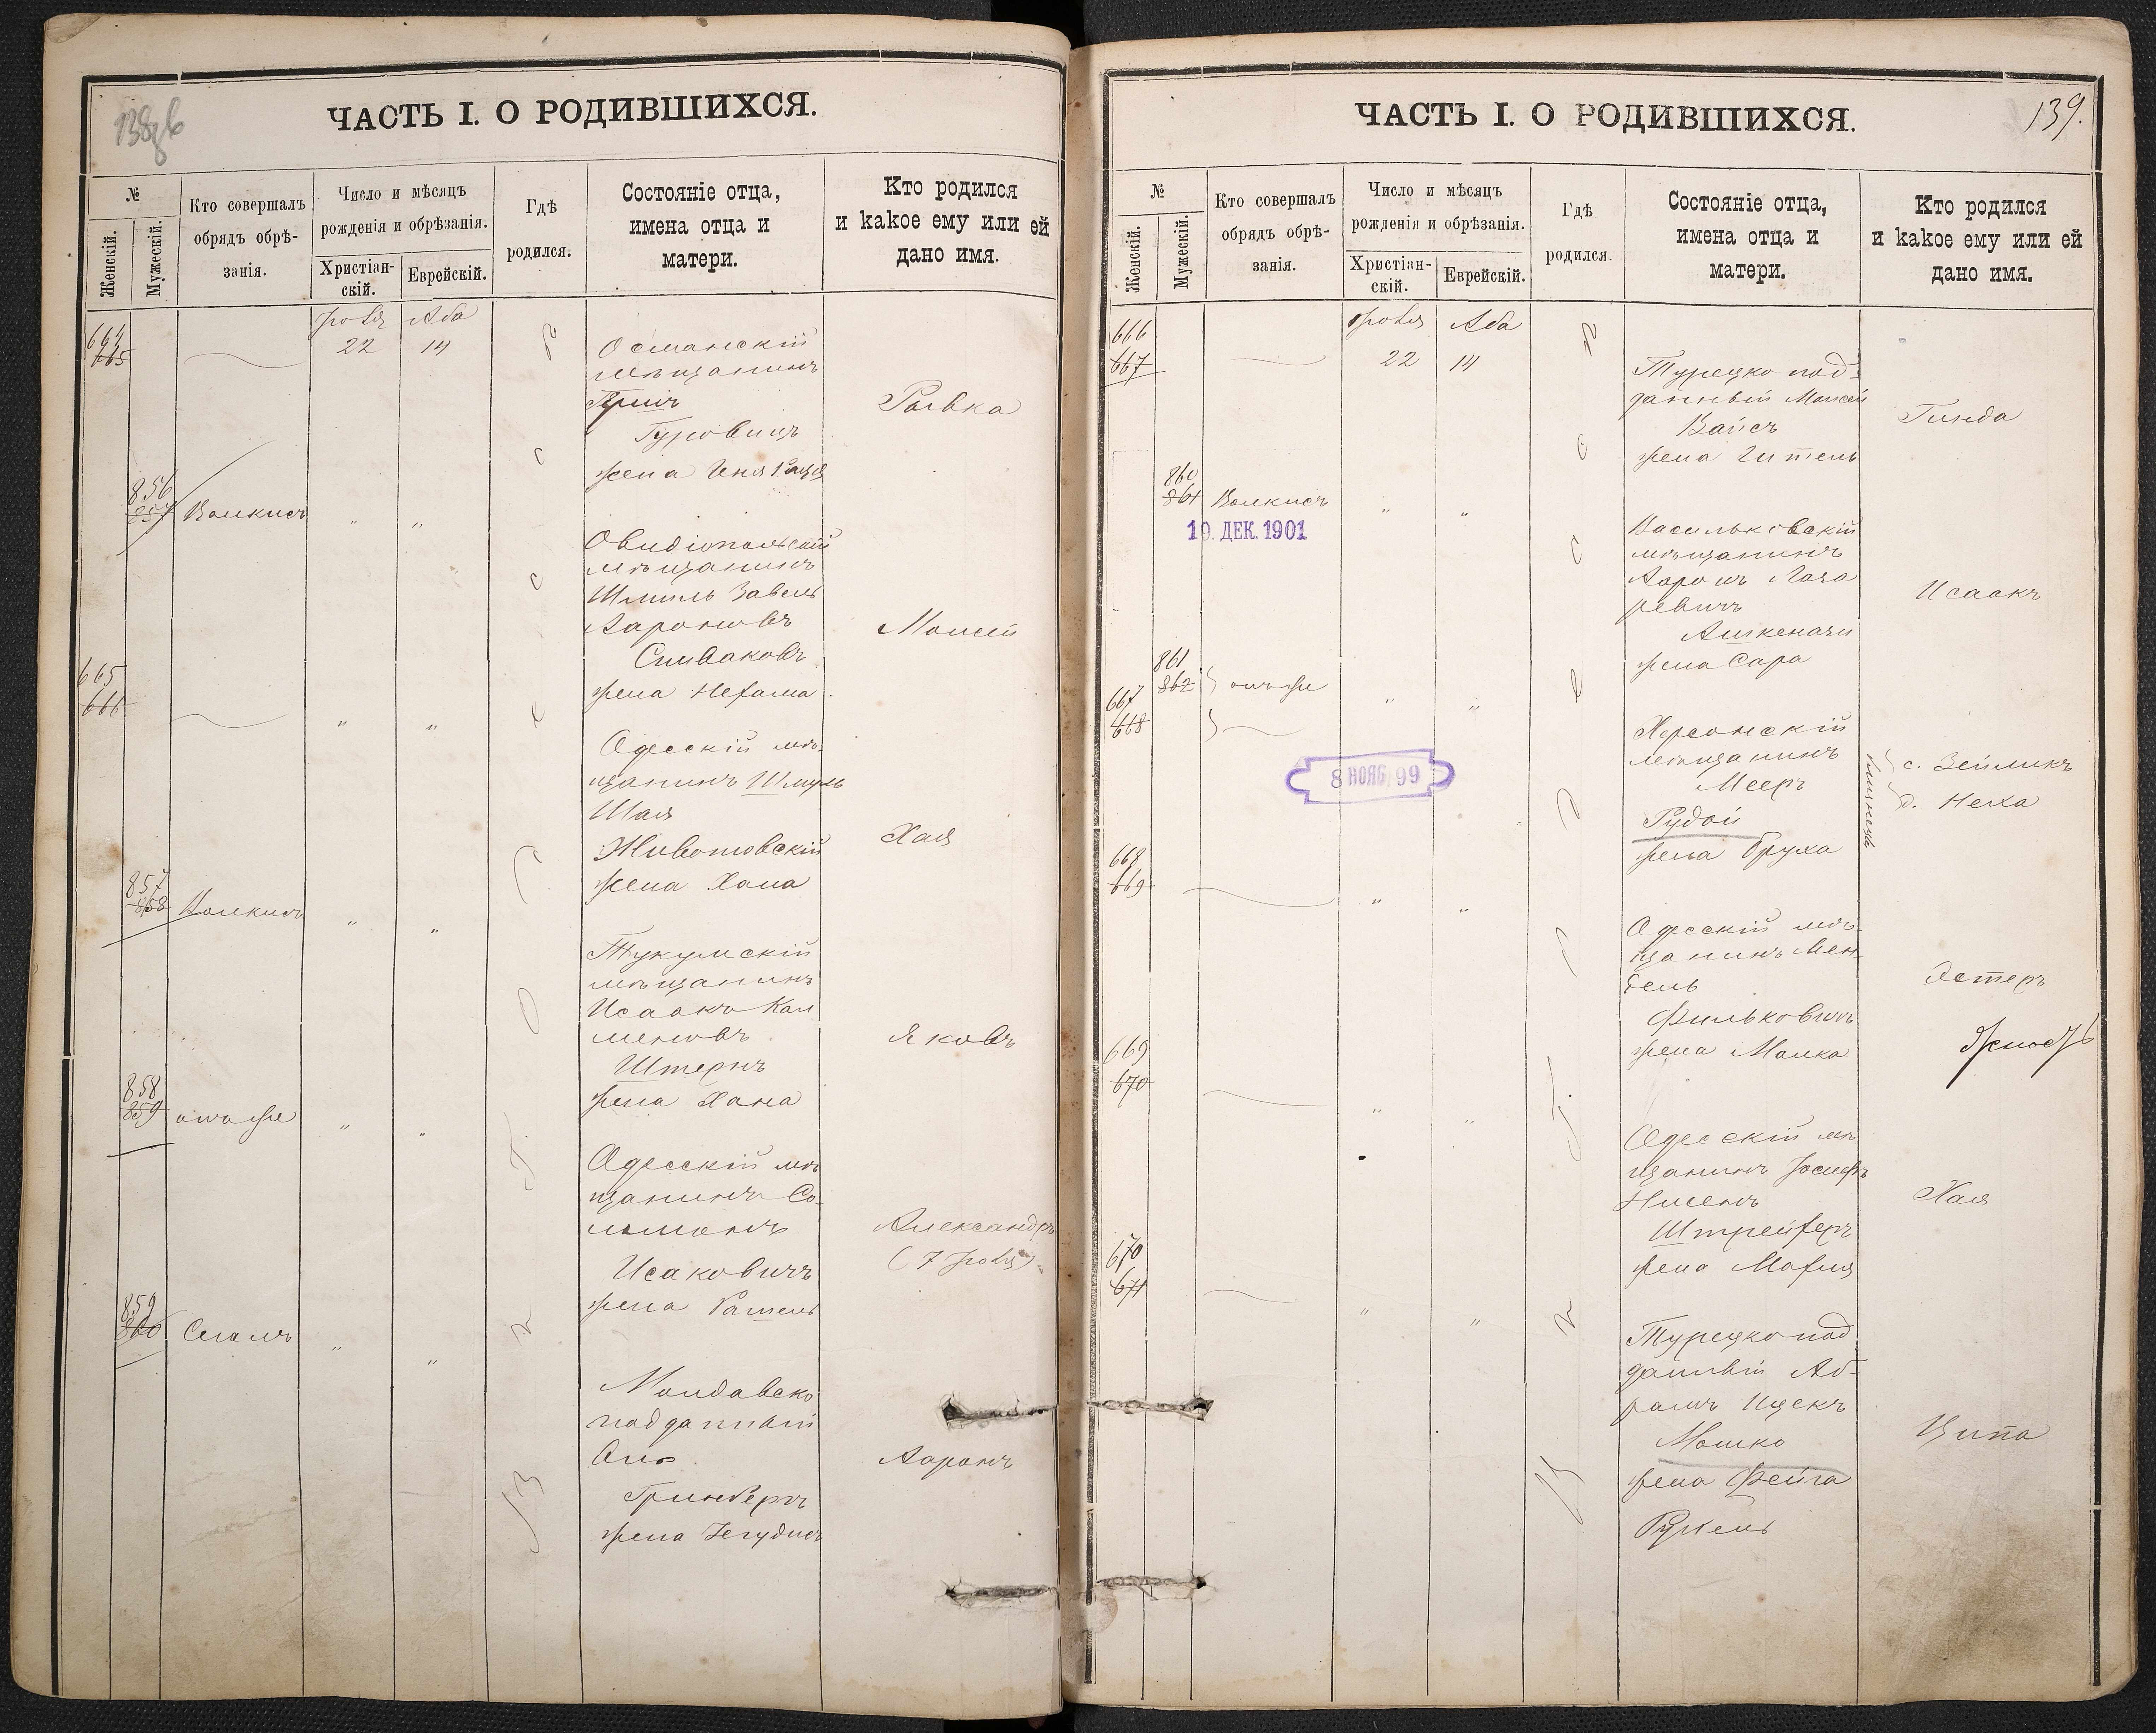 138 об
ЧАСТЬ I. О РОДИВШИХСЯ.
№
Женскій.
Мужескій.
Кто совершалъ
обрядъ обрѣ-
занія.
Число и мѣсяцъ
рожденія и обрѣзанія.
Христіан-
скій.
Еврейскій.
Гдѣ
родился.
Состояніе отца,
имена отца и
матери.
Кто родился
и какое ему или ей
дано имя.
664
665
Іюля
22
Аба
14
Османскій
мѣщанинъ
Гуровичъ
жена Геня
Рывка
856
857
Волкисъ
" "
Овидіопольскій
мѣщанинъ
Шмиль Завель
Ароновъ
Спиваковъ
жена Нехама
Моисей
665
666
" "
Одесскій мѣ-
щанинъ Шмуль
Шая
Животовскій
жена Хана
Хая
857
858
Волкисъ
" "
Тукумскій
мѣщанинъ
Исаакъ Кал
меновъ
Штернъ
жена Хана
Яковъ
858
859
онъ же
" "
Одесскій мѣ
щанинъ Со-
ломонъ
Исаковичъ
жена Рашель
Александръ
(7 Іюля)
859
860
Сегалъ
" "
Молдавско
подданный
Гринбергъ
жена Іегудисъ
Ааронъ
Одессѣ
139.
ЧАСТЬ I. О РОДИВШИХСЯ.
№
Женскій.
Мужескій.
Кто совершалъ
обрядъ обрѣ-
занія.
Число и мѣсяцъ
рожденія и обрѣзанія.
Христіан-
скій.
Еврейскій.
Гдѣ
родился.
Состояніе отца,
имена отца и
матери.
Кто родился
и какое ему или ей
дано имя.
666
667
Іюля
22
Аба
14
Турецко под-
данный Моисей
Вайсъ
жена Гитель
Гинда
860
861
Волкисъ
" "
19. ДЕК. 1901
Васильковскій
мѣщанинъ
Ааронъ Лаза
ревичъ
Ашкенази
жена Сара
Исаакъ
861
862
онъ же
667
668
" "
8 НОЯБ 99
Херсонскій
мѣщанинъ
Мееръ
Рудой
жена Бруха
близнецы
с. Зейликъ
д. Неха
668
669
" "
Одесскій мѣ-
щанинъ Мен-
дель
Фильковичъ
жена Малка
Эстеръ
669
670
" "
Одесскій мѣ
щанинъ Іосифъ
Нисенъ
Штрейферъ
жена Марія
Хая
670
671
" "
Турецко под
данный Аб-
рамъ Ицекъ
Мошко
жена Фейга
Рухель
Ципа